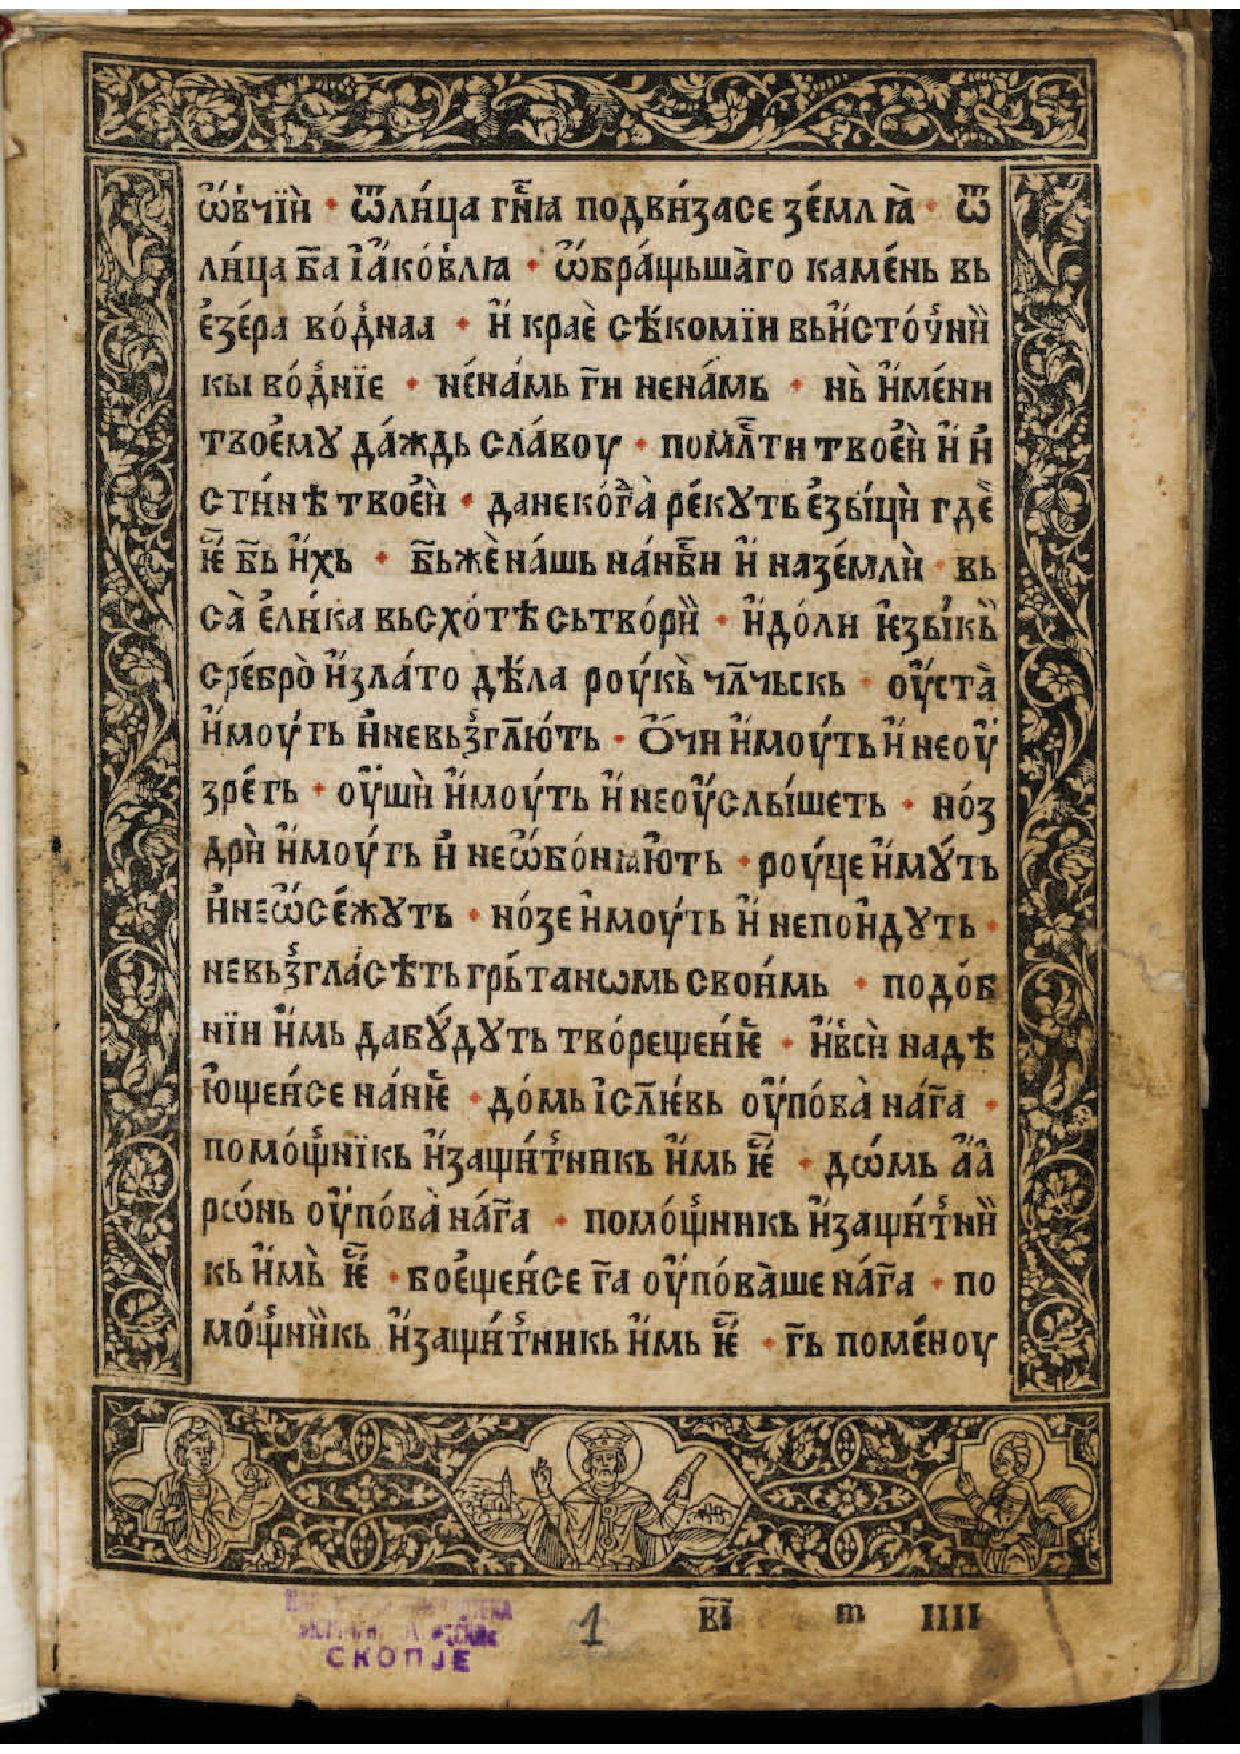 ѡ҆́вчїи • ѿли́ца гн҃ꙗ подви́засе зе́млꙗ̀ • ѿ
ли́ца б҃а і҆а҆ко́влꙗ • ѡ҆бра́щьша̀го каме́нь вь
є҆зе́ра во́дⷩ҇наа • и҆ краѐ сѣ́комїи вьи҆сто́чⷩ҇ни
кы во́дⷩ҇нїе • не́на́мь г҃и нена́мь • нь̀ и҆ме́ни
твоє҆мꙋ да́ждь сла́воу • помл҇ти твоє҆ѝ и҆ и҆
сти́нѣ твоє҆ѝ • данеко́гⷣа̀ ре́кꙋть є҆зы́цѝ гдѐ
ѥ҇ б҃ь и҆хь • б҃ьжѐ на́шь на́нб҃и и҆ назе́млѝ • вь
са̀ є҆ли́ка вьсхо́тѣ сьтво́ри̏ • и҆до́ли ѥ҆зы́кь̏
сре́бро̀ и҆зла́то дѣ́ла роу́кь̀ чл҃чьскь • оу҆́ста̀
и҆́моуть и҆невьз̾гл҃ю́ть • Ѻ҆чи и҆́моу́ть и҆ неоу҆
зре́ть • оу҆́шѝ и҆́моу́ть и҆ неоу҆слы́шеть • но́з
дрѝ и҆́моу́ть и҆ неѡ҆бо́нꙗю́ть • роу́це и҆́мꙋ́ть
и҆неѡ҆се́жꙋть • но́зе и҆моу́ть и҆ непои҆дꙋть •
невьз̾гла́сѣть грь́танѡмь свои́мь • подо́б
нїи и҆́мь дабꙋ́дꙋть тво́реще́и ѥ̏ • и҆́всѝ надѣ
ю҆ще́исе на́нѥ̏ • до́мь і҆сл҃ѥ́вь оу҆по́ва̀ на́г҃а •
помо́щⷩ҇нїкь и҆защи́т̾никь и҆́мь ѥ҇ • дѡ́мь а҆́а҆
рѡ́нь оу҆по́ва̀ на́г҃а • помо́щⷩ҇никь и҆защи́т̾ни̏
кь и҆́мь̀ ѥ҇ • боє҆ще́исе г҃а оу҆по́ва̀ше на́г҃а • по
мо́щⷩ҇ни̏кь и҆защи́т̾никь и҆́мь ѥ҇ • г҃ь поме́ноу
СКОПЈЕ
1 в҃і т IIII